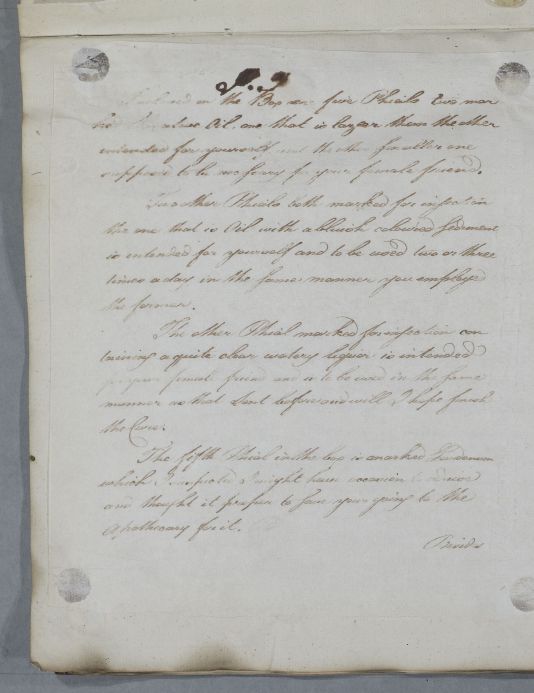 in the Box are five Phials two mar
ked Oil, one that is larger than the other
intended for yourself and the other smaller one
supposed to be necessary for your female friend.
Two other Phials both marked for injection
the one that is Oil with a bluish coloured Sediment
is intended for yourself and to be used two or three
times a day in the same manner you employ'd
the former.
The other Phial marked for injection con
taining a quite clear watery liquor is intended
for your female friend and is to be used in the same
manner as that sent before and will I hope finish
the Cure.
The fifth Phial in the box is marked
which I suspected I might have occasion to advise
and thought it proper to save your going to the
Apothecary for it.